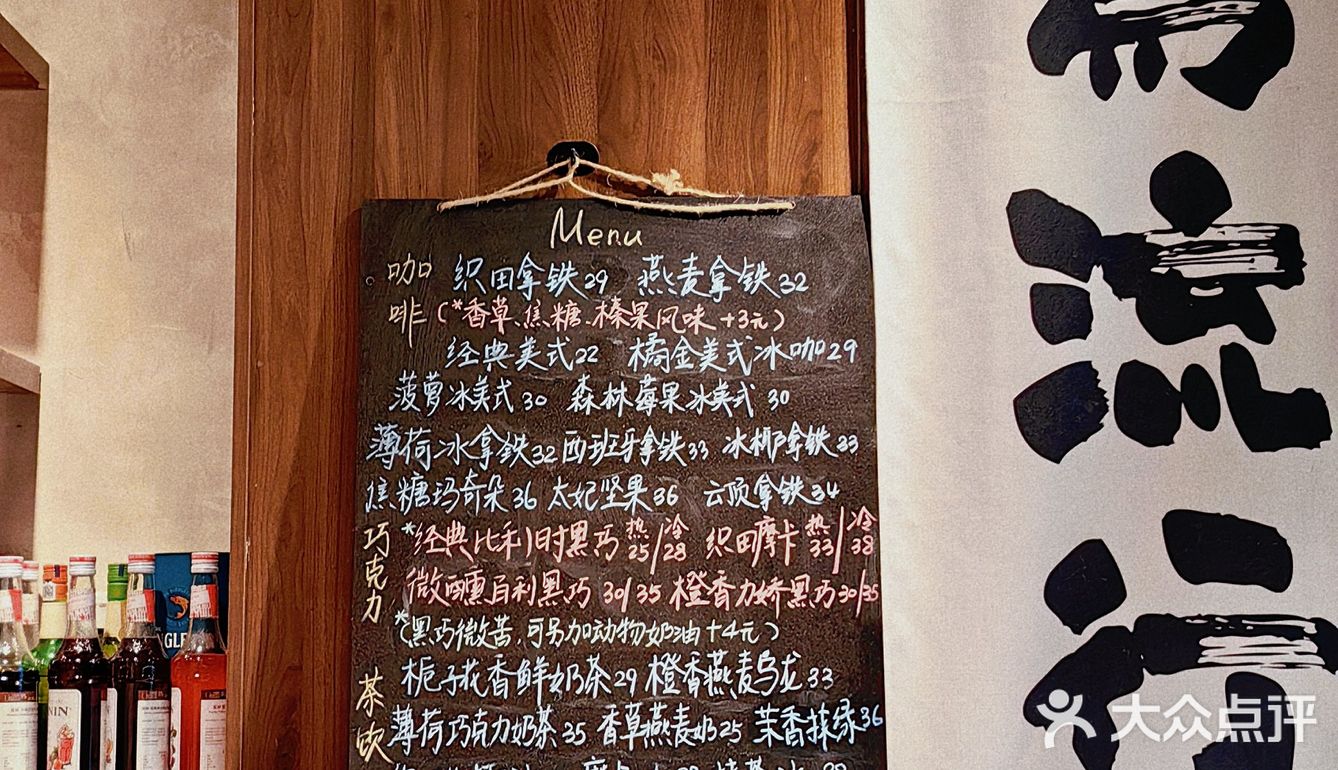 Menu
咖啡
织田拿铁29 燕麦拿铁32
(*香草、焦糖、榛果风味+3元)
经典美式22 橘金美式冰咖29
菠萝冰美式30 森林莓果冰美式30
薄荷冰拿铁32 西班牙拿铁33 冰椰拿铁33
焦糖玛奇朵36 太妃坚果36 云顶拿铁34
巧克力
*经典比利时黑巧 热25/冷28 织田摩卡 热33/冷38
微醺百利黑巧30/35 橙香力娇黑巧30/35
*(黑巧微苦,可另加动物奶油+4元)
茶饮
栀子花香鲜奶茶29 橙香燕麦乌龙33
薄荷巧克力奶茶35 香草燕麦奶25 茉香抹绿36
流
行
大众点评